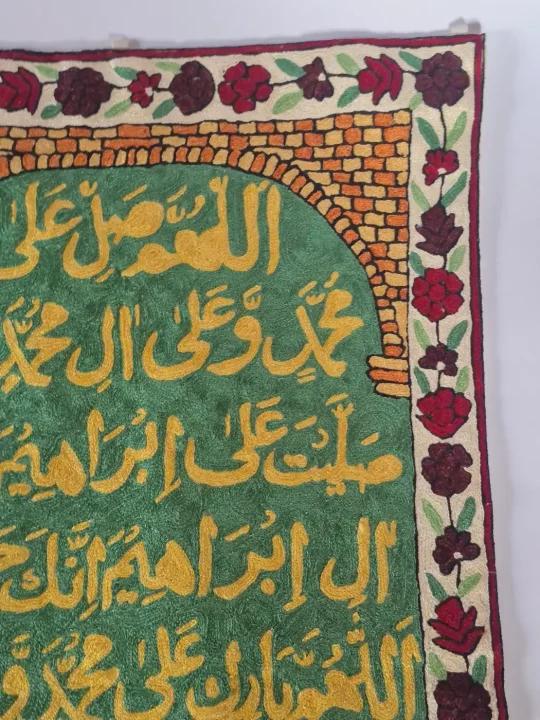 اَللّٰهُمَّ صَلِّ عَلىٰ
مُحَمَّدٍ وَّعَلىٰ اٰلِ مُحَمَّدٍ
صَلَّيْتَ عَلىٰ اِبْرَاهِيْمَ
اٰلِ اِبْرَاهِيْمَ اِنَّكَ
اَللّٰهُمَّ بَارِكْ عَلىٰ مُحَمَّدٍ وَّ